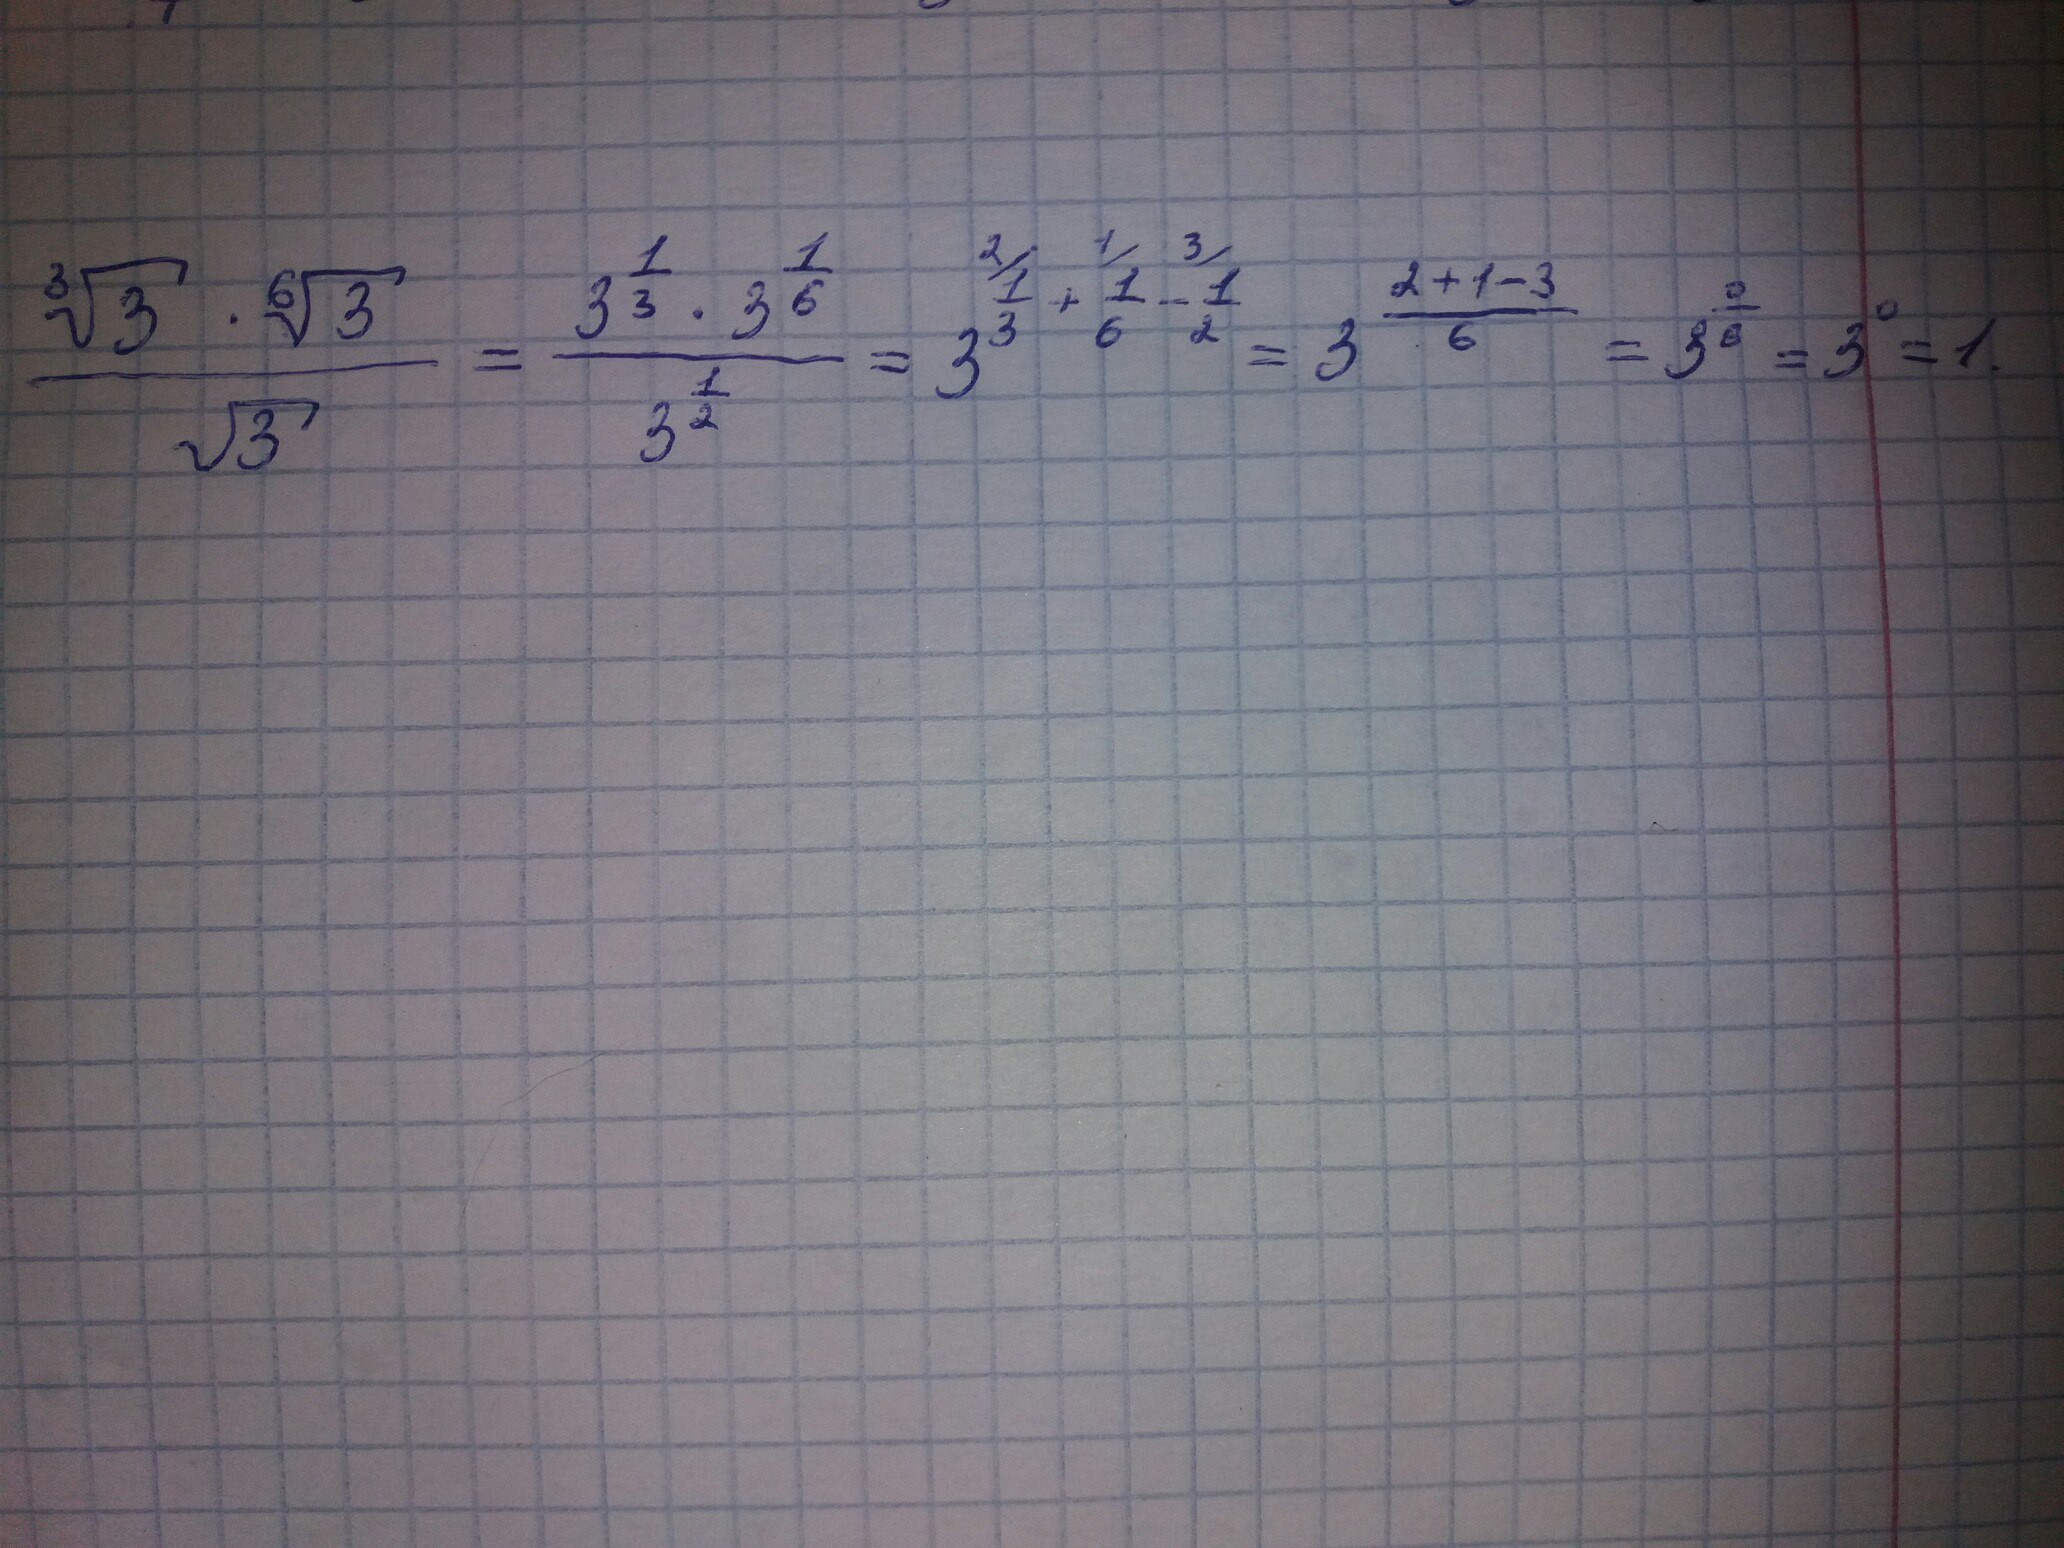 $\frac{\sqrt[3]{3} \cdot \sqrt[6]{3}}{\sqrt{3}} = \frac{3^{\frac{1}{3}} \cdot 3^{\frac{1}{6}}}{3^{\frac{1}{2}}} = 3^{{}^{2/}\frac{1}{3} + {}^{1/}\frac{1}{6} - {}^{3/}\frac{1}{2}} = 3^{\frac{2+1-3}{6}} = 3^{\frac{0}{6}} = 3^{0} = 1.$